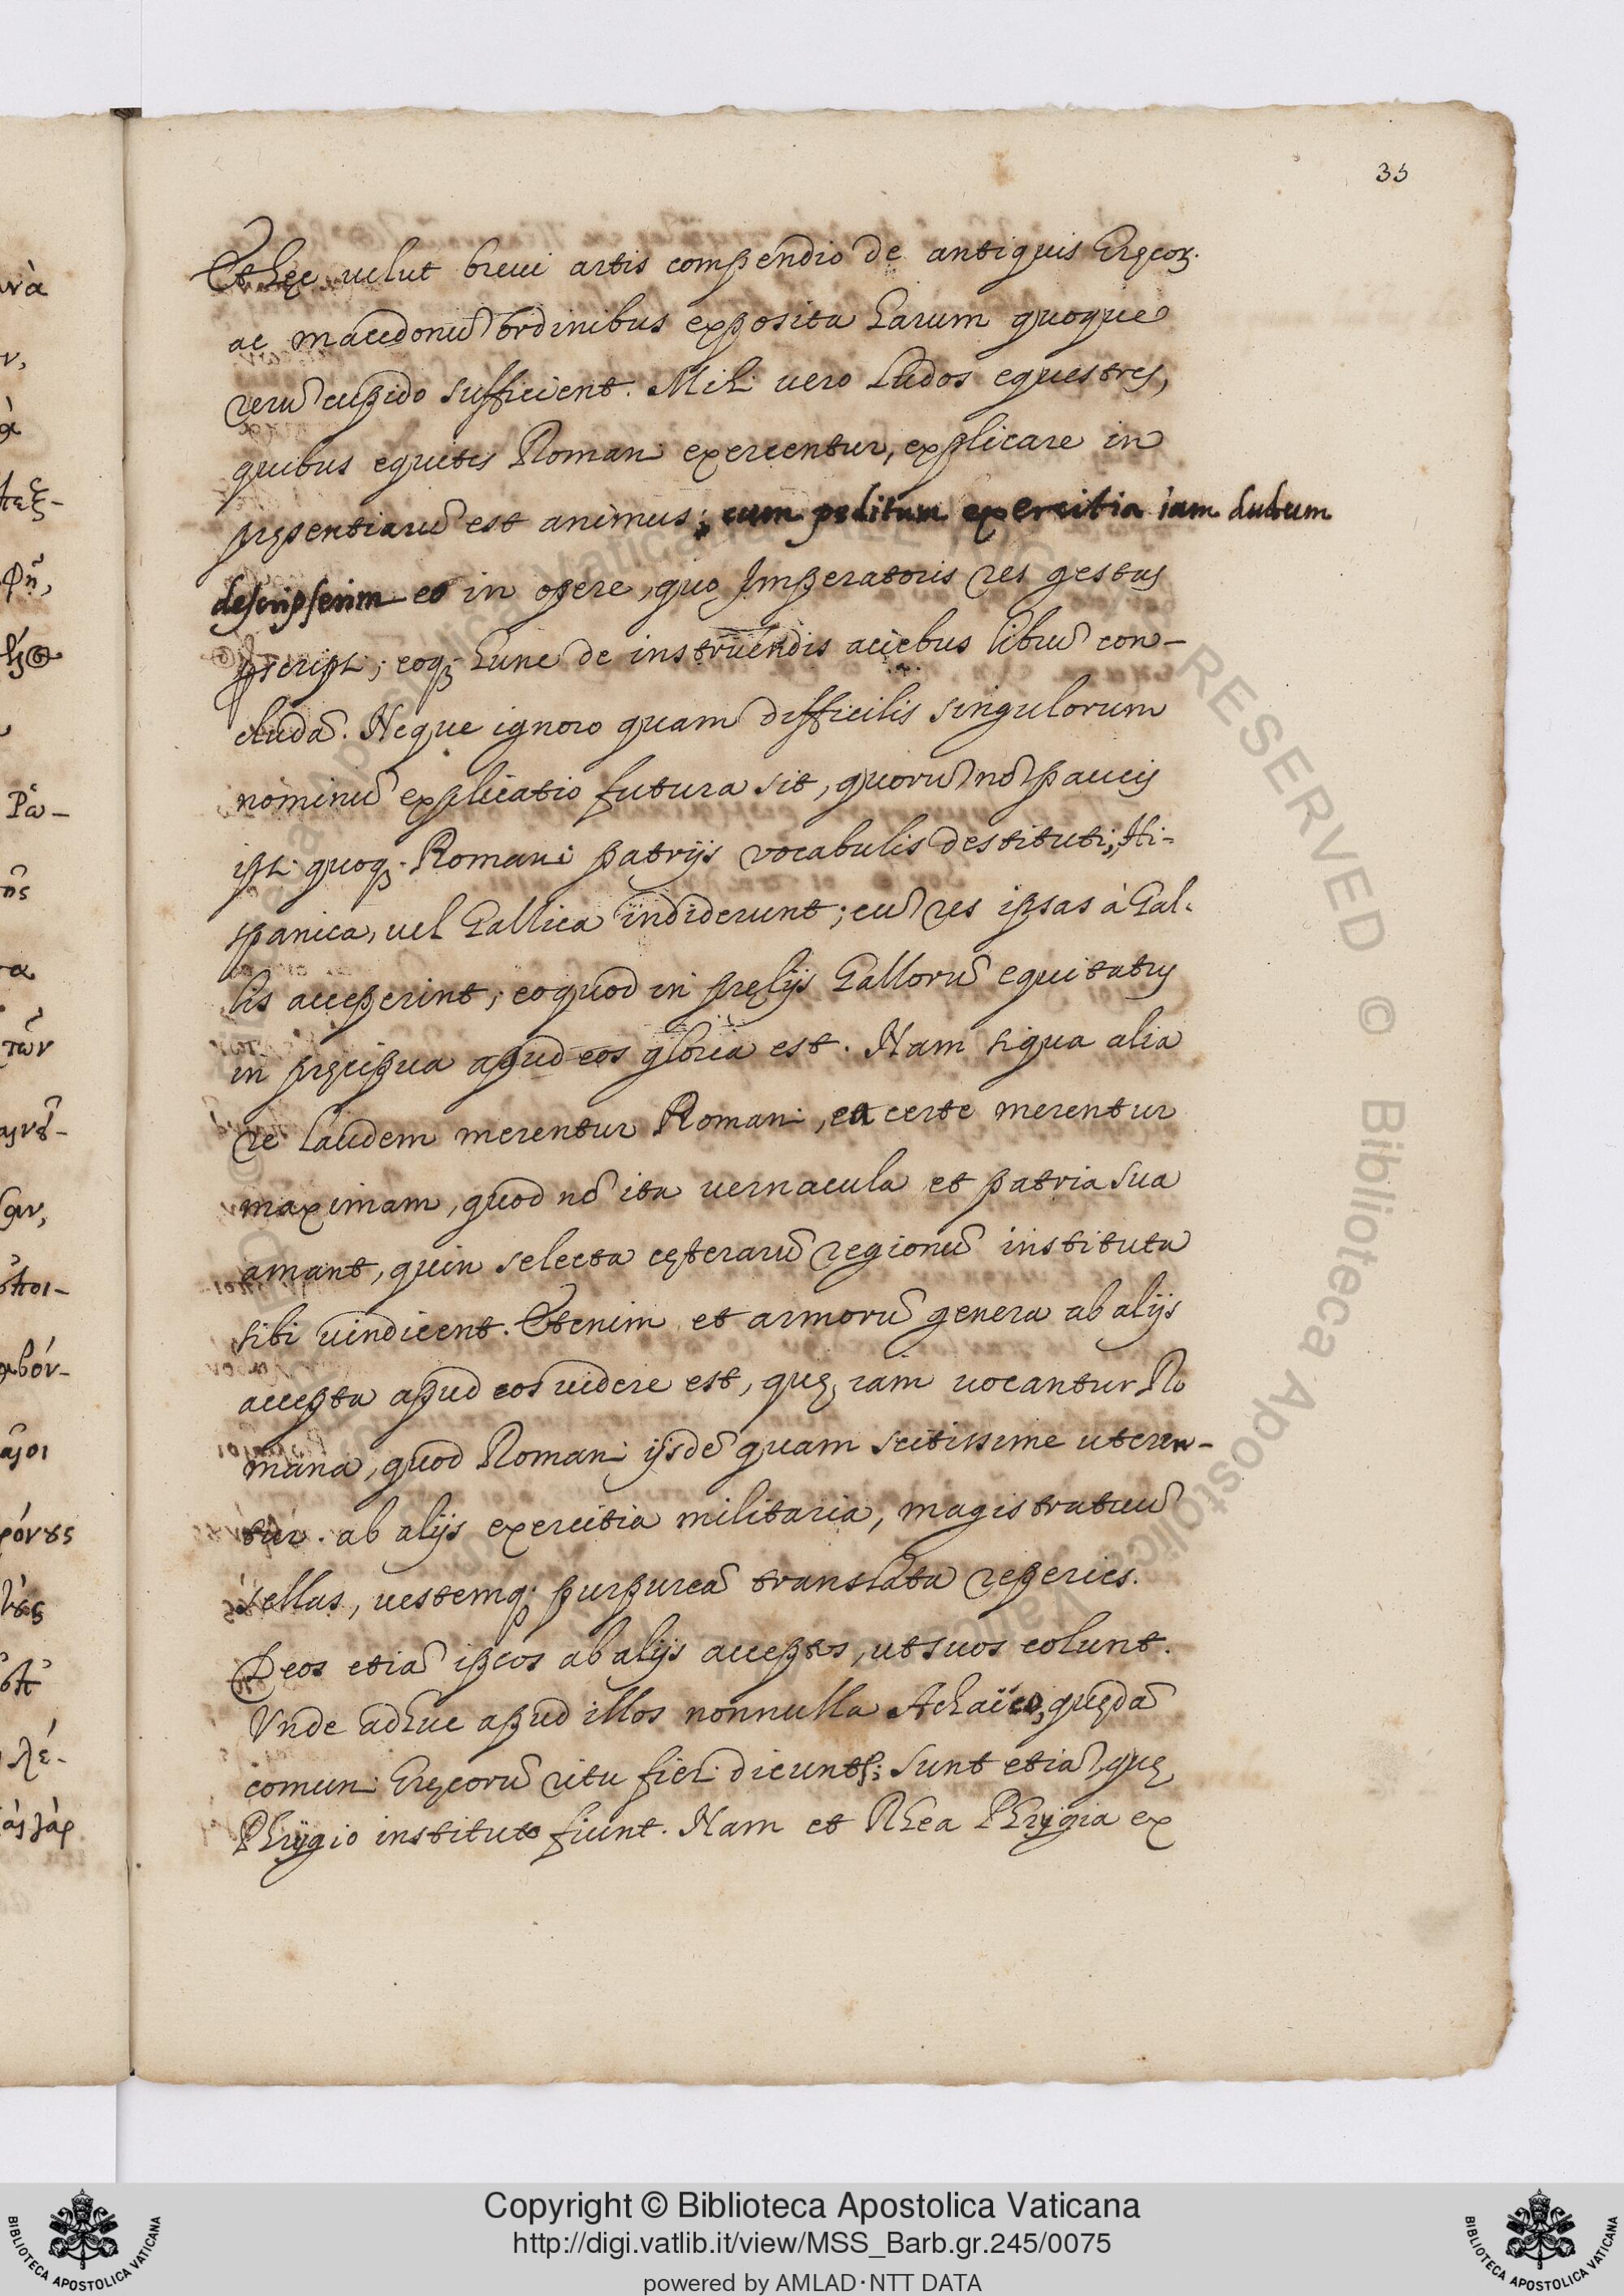 33
Et hęc uelut breui artis compendio de antiquis Gręcoꝝ.
ac Macedonũ ordinibus exposita harum quoque
rerũ cupido sufficient. Mihi uero Ludos equestres,
quibus equites Romani exercentur, explicare in
pręsentiarũ est animus; cum peditum exercitia iam dudum
descripserim eo in opere, quo Imperatoris res gestas
pscripsi; eoq; hunc de instruendis aciebus librũ con-
cludã. Neque ignoro quam difficilis singulorum
nominũ explicatio futura sit, quorũ nõ paucis
ipsi quoq; Romani patrijs vocabulis destituti; Hi-
spanica, uel Gallica indiderunt; cũ res ipsas à Gal-
lis acceperint; eoquod in pręlijs Gallorũ equitatus
in pręcipua apud eos gloria est. Nam siqua alia
re laudem merentur Romani, ea certe merentur
maximam, quod nõ ita uernacula et patria sua
amant, quin selecta cęterarũ regionũ instituta
sibi uindicent. Etenim et armorũ genera ab alijs
accepta apud eos uidere est, quę iam uocantur Ro
mana, quod Romani ijsdẽ quam scitissime uteren-
tur. ab alijs exercitia militaria, magistratuũ
sellas, uestemq; purpureã translata reperies.
Deos etiã ipsos ab alijs acceptos, ut suos colunt.
Vnde adhuc apud illos nonnulla Achaïco, quędã
comuni Gręcorũ ritu fieri dicunt; sunt etiã, quę
Phrygio instituto fiunt. Nam et Rhea Phrygia ex
RESERVED © Biblioteca Apostolica Vaticana
Copyright © Biblioteca Apostolica Vaticana
http://digi.vatlib.it/view/MSS_Barb.gr.245/0075
powered by AMLAD·NTT DATA
BIBLIOTECA APOSTOLICA VATICANA
BIBLIOTECA APOSTOLICA VATICANA